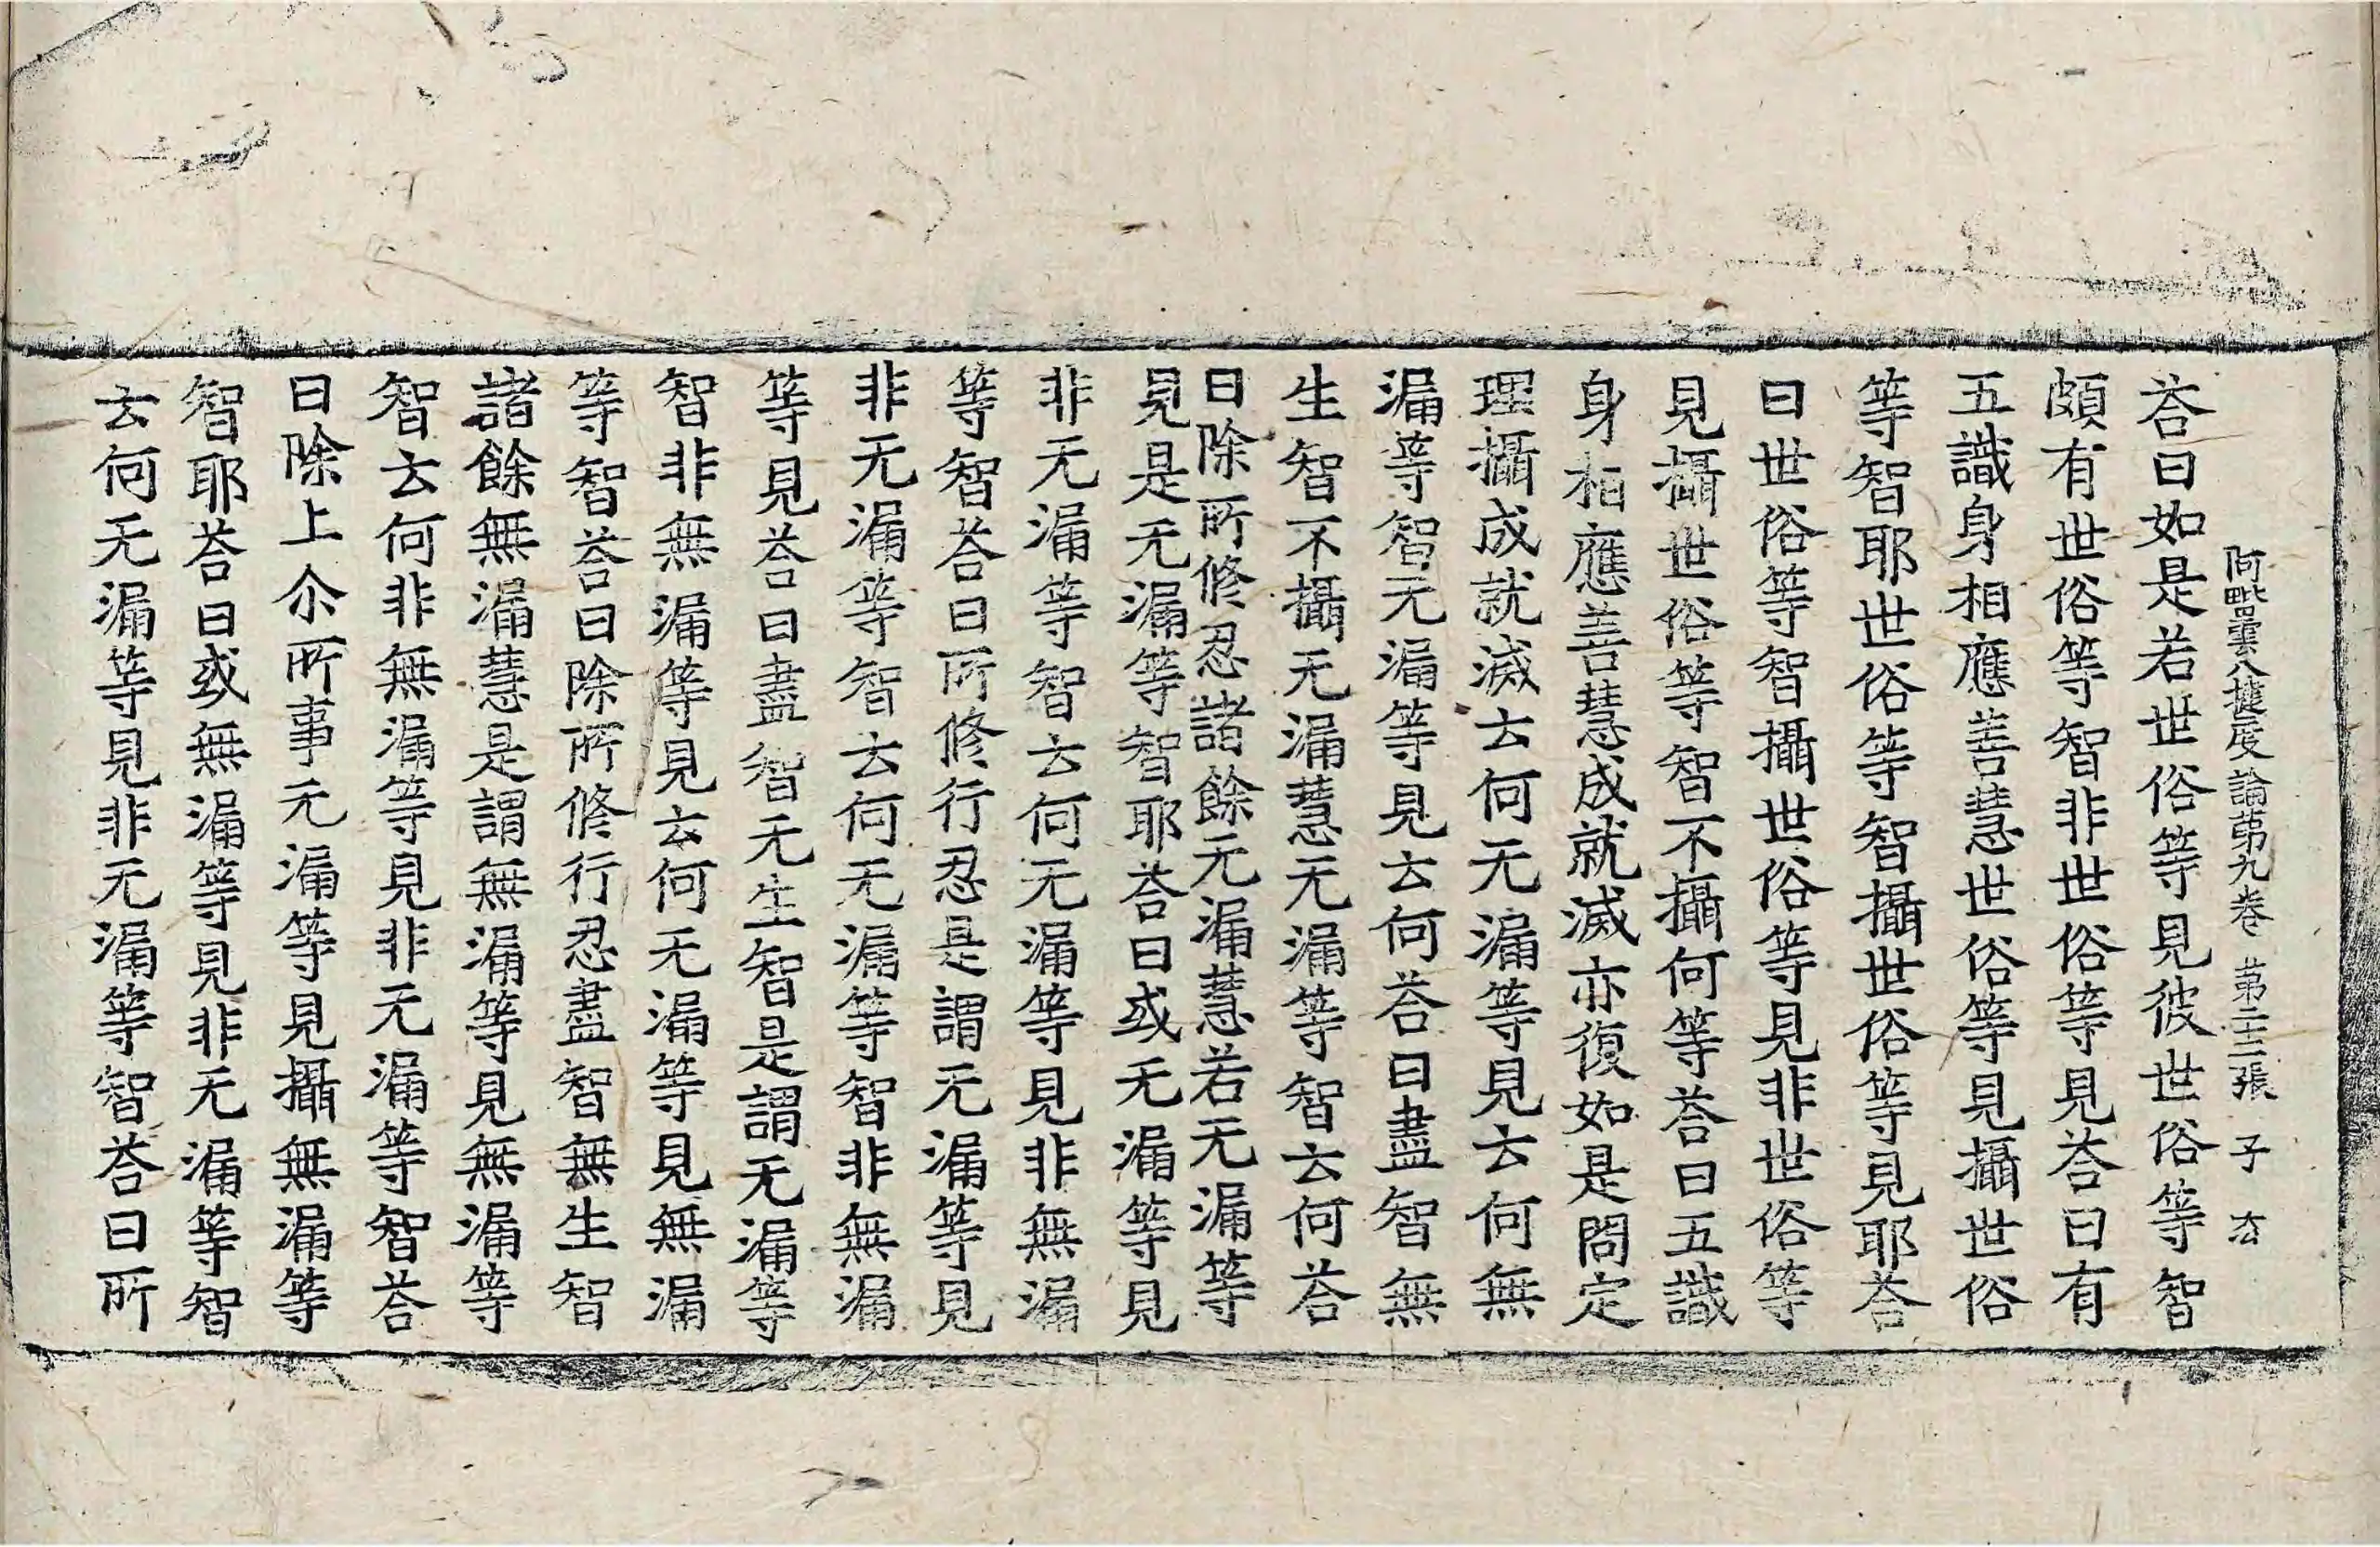 阿毗曇八揵度論第九卷 第二十三張 子 𡊮
荅曰如是若世俗等見彼世俗等智
頗有世俗等智非世俗等見荅曰有
五識身相應善慧世俗等見攝世俗
等智耶世俗等智攝世俗等見耶荅
曰世俗等智攝世俗等見非世俗等
見攝世俗等智不攝何等荅曰五識
身相應善慧成就滅亦復如是問定
理攝成就滅云何无漏等見云何無
漏等智无漏等見云何荅曰盡智無
生智不攝无漏慧无漏等智云何荅
曰除所修忍諸餘无漏慧若无漏等
見是无漏等智耶荅曰或无漏等見
非无漏等智云何无漏等見非無漏
等智荅曰所修行忍是謂无漏等見
非无漏等智云何无漏等智非無漏
等見荅曰盡智无生智是謂无漏等
智非無漏等見云何无漏等見無漏
等智荅曰除所修行忍盡智無生智
諸餘無漏慧是謂無漏等見無漏等
智云何非無漏等見非无漏等智荅
曰除上尒所事无漏等見攝無漏等
智耶荅曰或無漏等見非无漏等智
云何无漏等見非无漏等智荅曰所